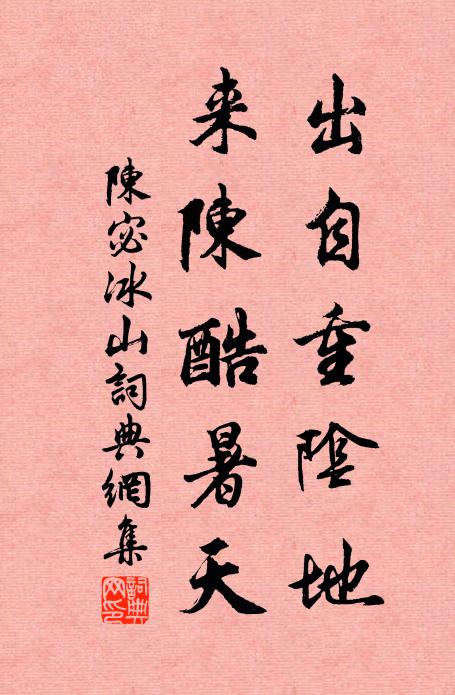 出自重陰地
来陳酷暑天
陳宓冰山詞典網集
詞典網印